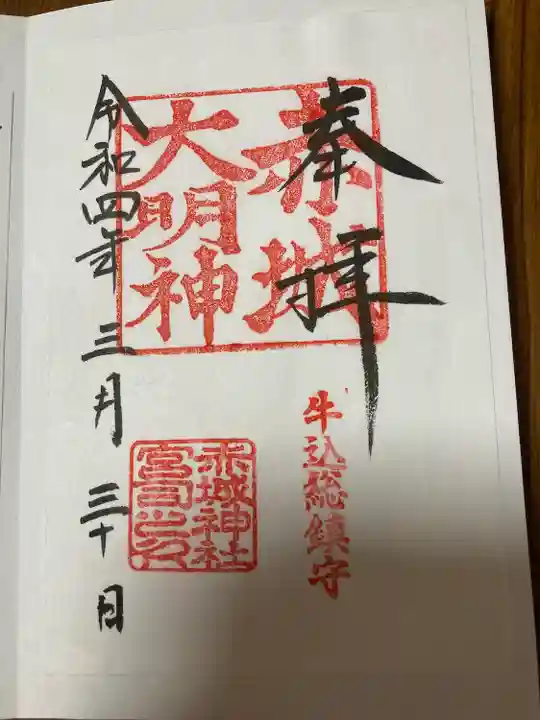 奉拝
赤城
大明神
牛込総鎮守
赤城神社
宮司之印
令和四年三月三十日